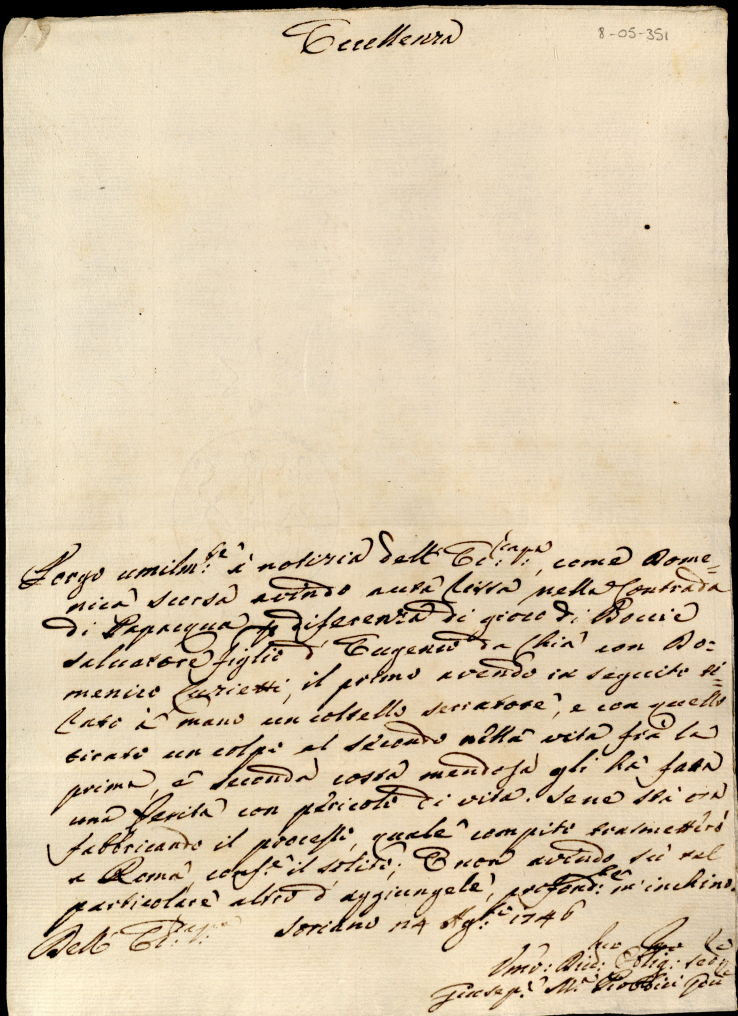 Eccellenza
8-05-351
Porgo umilm:te à notizia dell' Ecc:za V:, come Dome=
nica scorsa avendo auta rissa nella Contrada
di Papacqua per diferenza di gioco di Boccie
Salvatore figlio d' Eugenio da Chia con Do=
menico Curietti, il primo avendo in seguito
mano un coltello serratore, e con quello
tirato un colpo al secondo nella vita frà la
prima, e seconda costa mendosa gli hà fatta
una ferita con pericolo di vita. Se ne stà ora
fabbricando il processo, quale compito trasmetterò
a Roma conf:e il solito; E non avendo sù tal
particolare altro d' aggiungele, profond:te m' inchino.
Dell' Soriano 4 Ag:to 1746
Umo: Obblig:
Giusep:e M:a